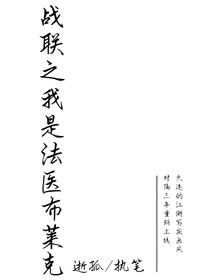 战联之我是法医布莱克
久违的江湖写实画风
时隔三年重新上线
逝孤/执笔